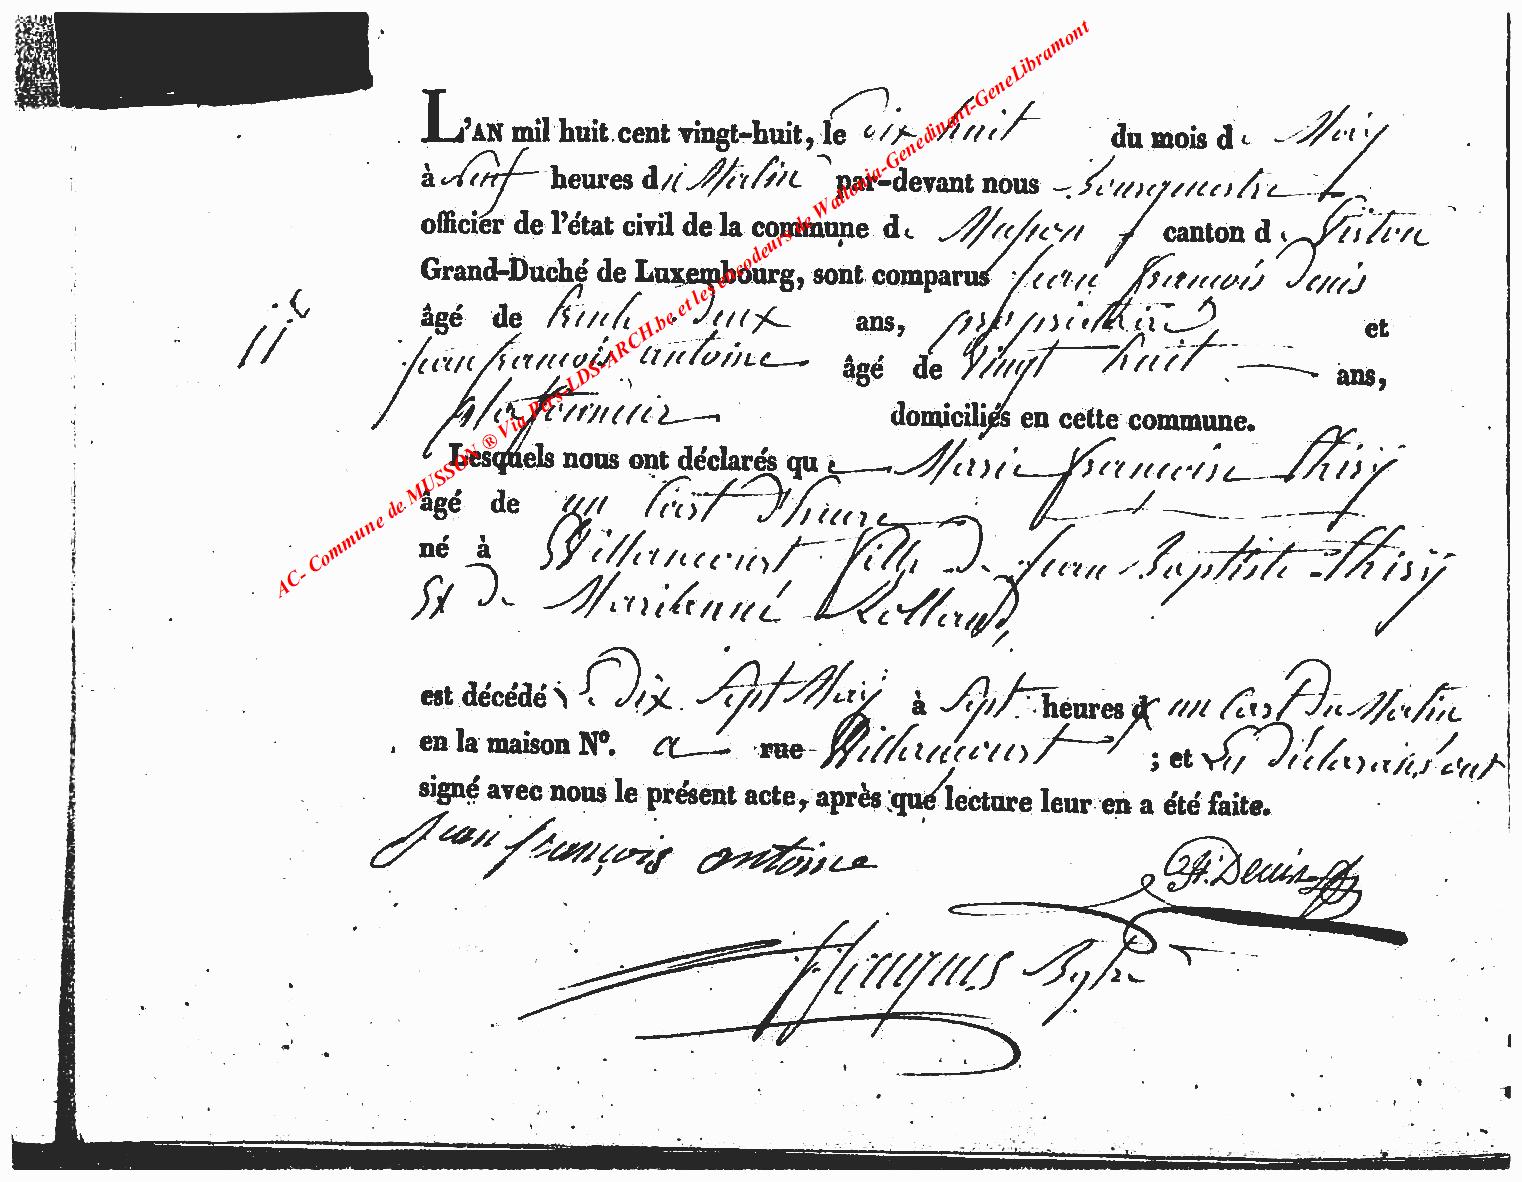 L'AN mil huit cent vingt-huit, le dix huit du mois de May
à neuf heures du Matin par-devant nous Bourgmestre
officier de l'état civil de la commune de Musson canton de Virton
Grand-Duché de Luxembourg, sont comparus Jean françois Denis
âgé de trente Deux ans, propriétaire et
jean françois antoine âgé de Vingt huit ans,
domiciliés en cette commune.
Lesquels nous ont déclarés que Marie françoise Thiry
âgé de un Cart D'heure
né à Willancourt fille De Jean Baptiste Thiry
Et De Marianne Rolland,
est décédé Dix Sept May à Sept heures d un Cart Du Matin
en la maison N°. a rue Willancourt ; et Les Déclarans ont
signé avec nous le présent acte, après que lecture leur en a été faite.
jean françois antoine
Jf. Denis
11e
AC- Commune de MUSSON ® Via Pers-LDS-ARCH.be et les encodeurs de Wallonia-Genedinant-GeneLibramont